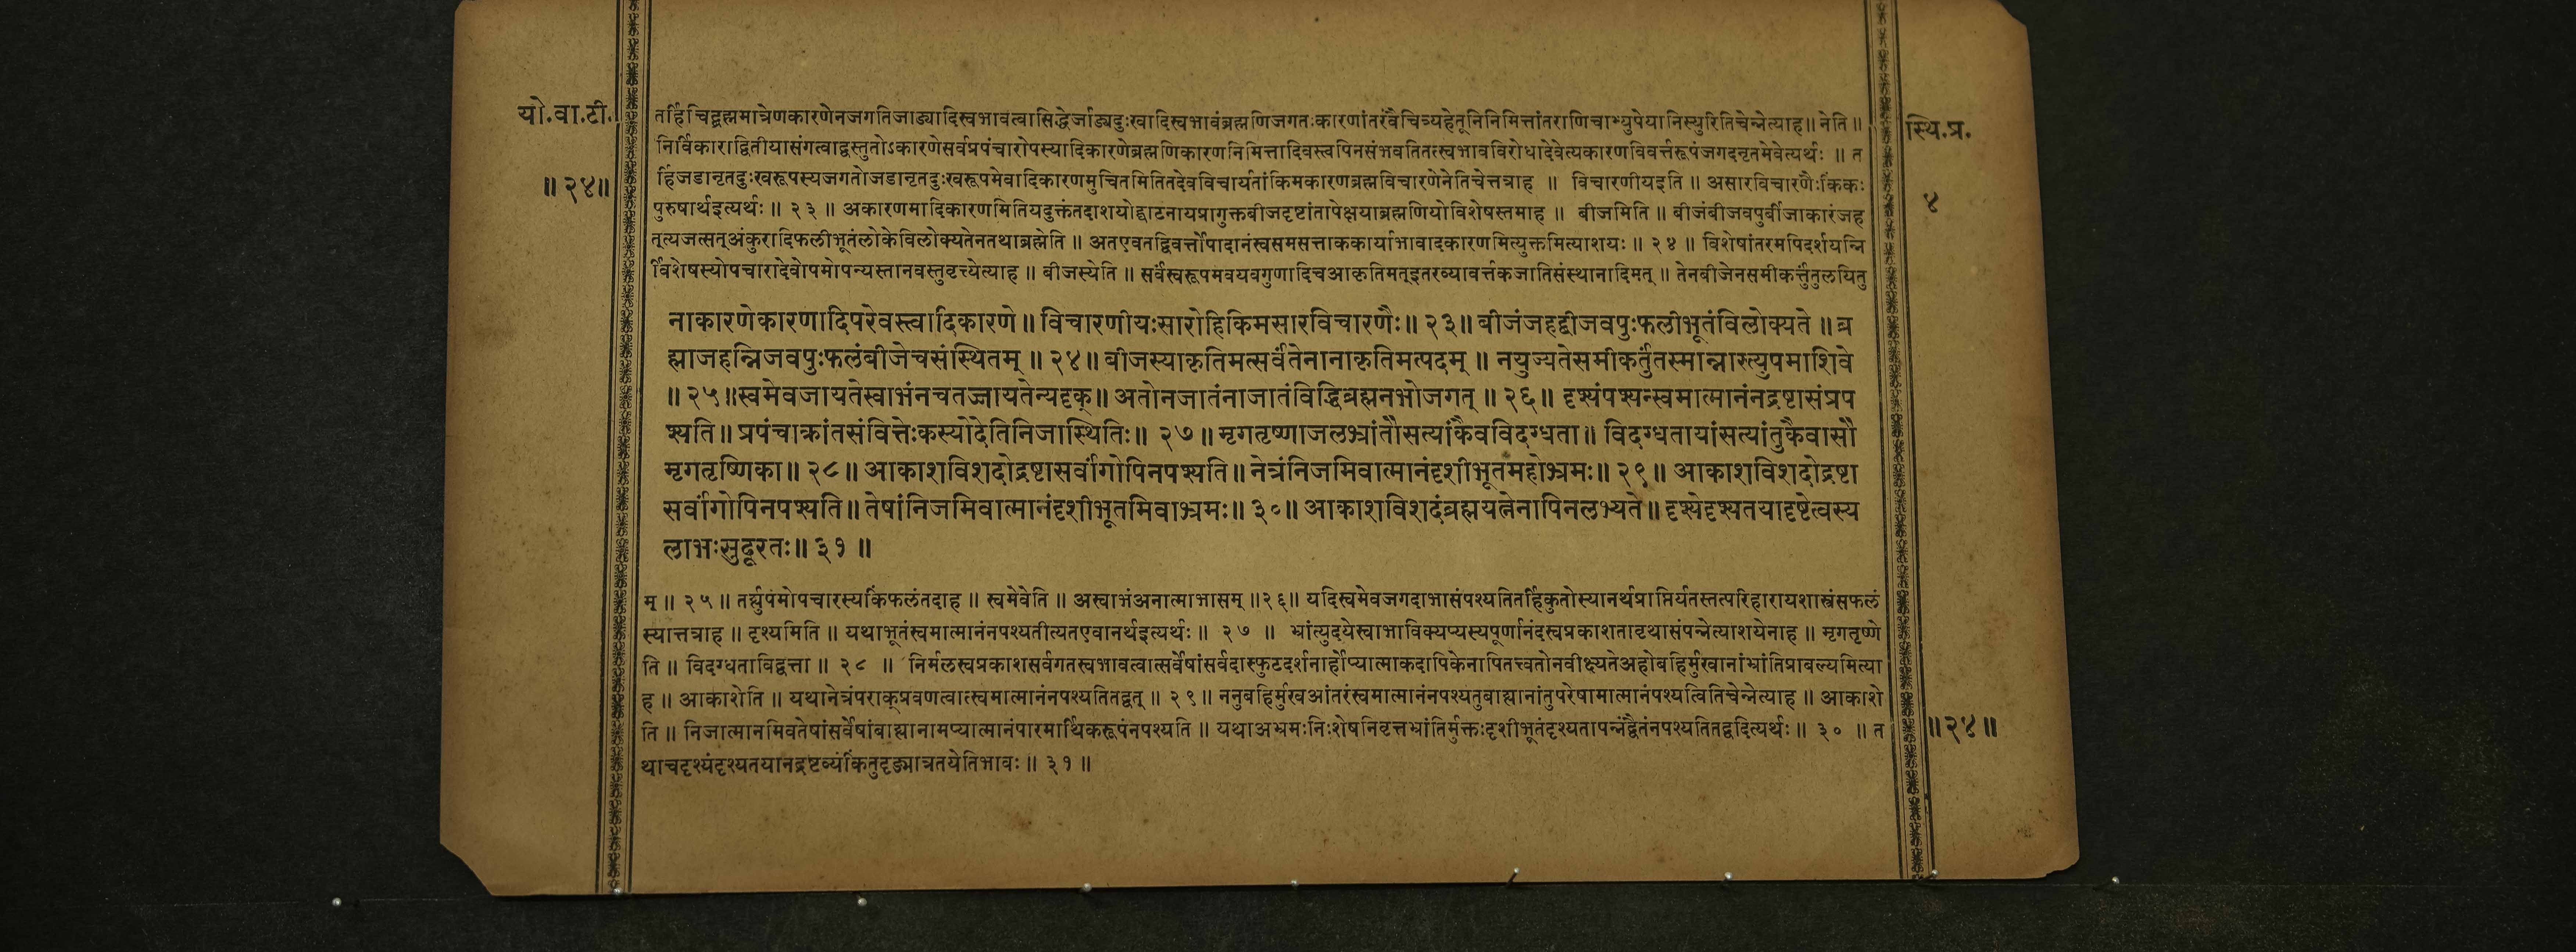 यो.वा.टी.
॥२४॥
स्थि.प्र.
४
तर्हिचिद्ब्रह्ममात्रेणकारणेनजगतिजाड्यादिस्वभावत्वासिद्धेर्जाड्यदुःखादिस्वभावंब्रह्मणिजगतःकारणांतरंवैचित्र्यहेतूनिनिमित्तांतराणिचाभ्युपेयानिस्युरितिचेन्नेत्याह॥ नेति॥
निर्विकाराद्वितीयासंगत्वाद्वस्तुतोऽकारणेसर्वप्रपंचारोपस्यादिकारणेब्रह्मणिकारणनिमित्तादिवस्त्वपिनसंभवतितत्स्वभावविरोधादेवेत्यकारणविवर्त्तरूपंजगदनृतमेवेत्यर्थः ॥ त
र्हिजडानृतदुःखरूपस्यजगतोजडानृतदुःखरूपमेवादिकारणमुचितमितितदेवविचार्यतांकिमकारणब्रह्मविचारणेनेतिचेत्तत्राह ॥ विचारणीयइति ॥ असारविचारणैःकिंकः
पुरुषार्थइत्यर्थः ॥ २३ ॥ अकारणमादिकारणमितियदुक्तंतदाशयोद्घाटनायप्रागुक्तबीजदृष्टांतापेक्षयाब्रह्मणियोविशेषस्तमाह ॥ बीजमिति ॥ बीजंबीजवपुर्बीजाकारंजह
त्त्यजत्सत्अंकुरादिफलीभूतंलोकेविलोक्यतेनतथाब्रह्मेति ॥ अतएवतद्विवर्त्तोपादानंस्वसमसत्ताककार्याभावादकारणमित्युक्तमित्याशयः ॥ २४ ॥ विशेषांतरमपिदर्शयन्नि
र्विशेषस्योपचारादेवोपमोपन्यस्तानवस्तुवृत्त्येत्याह ॥ बीजस्येति ॥ सर्वंस्वरूपमवयवगुणादिचआकृतिमत्इतरव्यावर्त्तकजातिसंस्थानादिमत् ॥ तेनबीजेनसमीकर्त्तुंतुलयितु
नाकारणेकारणादिपरेवस्त्वादिकारणे॥ विचारणीयःसारोहिकिमसारविचारणैः॥ २३॥ बीजंजहद्बीजवपुःफलीभूतंविलोक्यते ॥ ब्र
ह्माजहन्निजवपुःफलंबीजेचसंस्थितम् ॥ २४॥ बीजस्याकृतिमत्सर्वंतेनानाकृतिमत्पदम् ॥ नयुज्यतेसमीकर्तुंतस्मान्नास्त्युपमाशिवे
॥ २५॥स्वमेवजायतेस्वाभंनचतज्जायतेन्यदृक्॥ अतोनजातंनाजातंविद्धिब्रह्मनभोजगत् ॥ २६॥ दृश्यंपश्यन्स्वमात्मानंनद्रष्टासंप्रप
श्यति॥ प्रपंचाक्रांतसंवित्तेःकस्योदेतिनिजास्थितिः॥ २७॥ मृगतृष्णाजलभ्रांतौसत्यांकैवविदग्धता॥ विदग्धतायांसत्यांतुकैवासौ
मृगतृष्णिका॥ २८॥ आकाशविशदोद्रष्टासर्वांगोपिनपश्यति॥ नेत्रंनिजमिवात्मानंदृशीभूतमहोभ्रमः॥ २९॥ आकाशविशदोद्रष्टा
सर्वांगोपिनपश्यति॥ तेषांनिजमिवात्मानंदृशीभूतमिवाभ्रमः॥ ३०॥ आकाशविशदंब्रह्मयत्नेनापिनलभ्यते॥ दृश्येदृश्यतयादृष्टेत्वस्य
लाभःसुदूरतः॥ ३१ ॥
म् ॥ २५ ॥ तर्ह्युपमोपचारस्यकिंफलंतदाह ॥ स्वमेवेति ॥ अस्वाभंअनात्माभासम् ॥२६॥ यदिस्वमेवजगदाभासंपश्यतितर्हिकुतोस्यानर्थप्राप्तिर्यतस्तत्परिहारायशास्त्रंसफलं
स्यात्तत्राह ॥ दृश्यमिति ॥ यथाभूतंस्वमात्मानंनपश्यतीत्यतएवानर्थइत्यर्थः ॥ २७ ॥ भ्रांत्युदयेस्वाभाविक्यप्यस्यपूर्णानंदस्वप्रकाशतावृथासंपन्नेत्याशयेनाह ॥ मृगतृष्णे
ति ॥ विदग्धताविद्वत्ता ॥ २८ ॥ निर्मलस्वप्रकाशसर्वगतस्वभावत्वात्सर्वेषांसर्वदास्फुटदर्शनार्होप्यात्माकदापिकेनापितत्त्वतोनवीक्ष्यतेअहोबहिर्मुखानांभ्रांतिप्राबल्यमित्या
ह ॥ आकाशेति ॥ यथानेत्रंपराक्प्रवणत्वात्स्वमात्मानंनपश्यतितद्वत् ॥ २९॥ ननुबहिर्मुखआंतरंस्वमात्मानंनपश्यतुबाह्यानांतुपरेषामात्मानंपश्यत्वितिचेन्नेत्याह ॥ आकाशे
ति ॥ निजात्मानमिवतेषांसर्वेषांबाह्यानामप्यात्मानंपारमार्थिकरूपंनपश्यति ॥ यथाअभ्रमःनिःशेषनिवृत्तभ्रांतिर्मुक्तःदृशीभूतंदृश्यतापन्नंद्वैतंनपश्यतितद्वदित्यर्थः ॥ ३० ॥ त
थाचदृश्यंदृश्यतयानद्रष्टव्यंकिंतुदृङ्मात्रतयेतिभावः ॥ ३१ ॥
॥२४॥